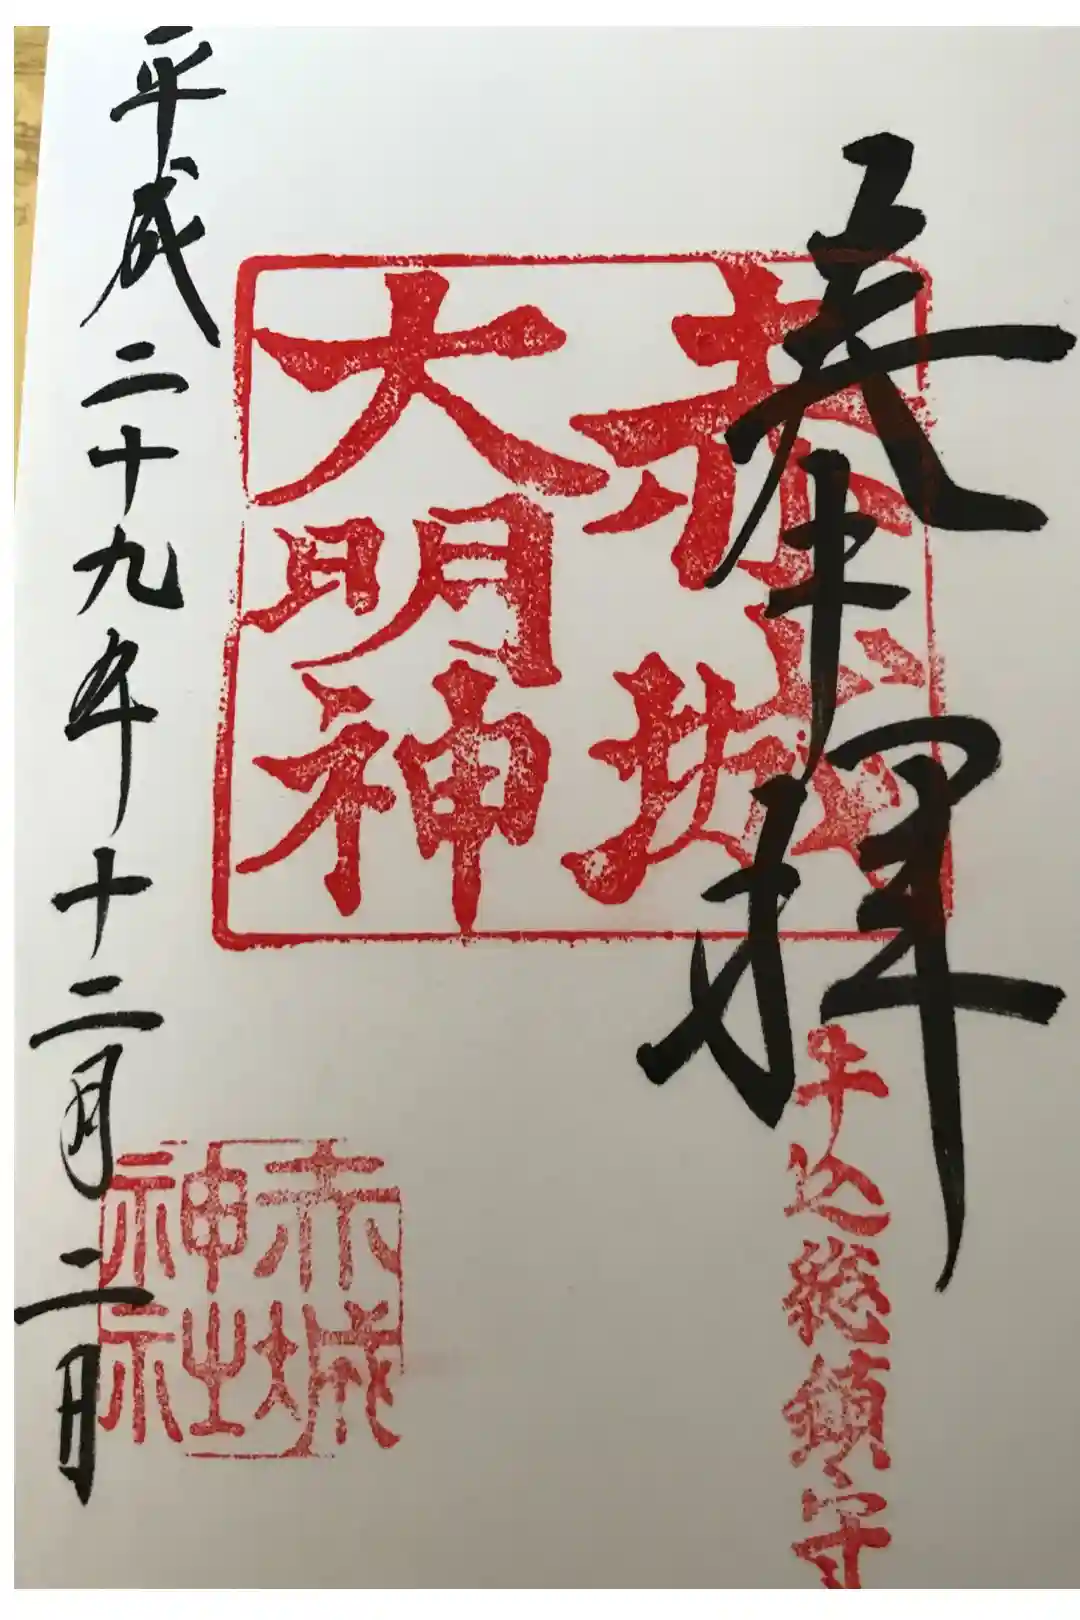 奉拝
牛込総鎮守
赤城
大明神
赤城
神社
平成二十九年十二月二日